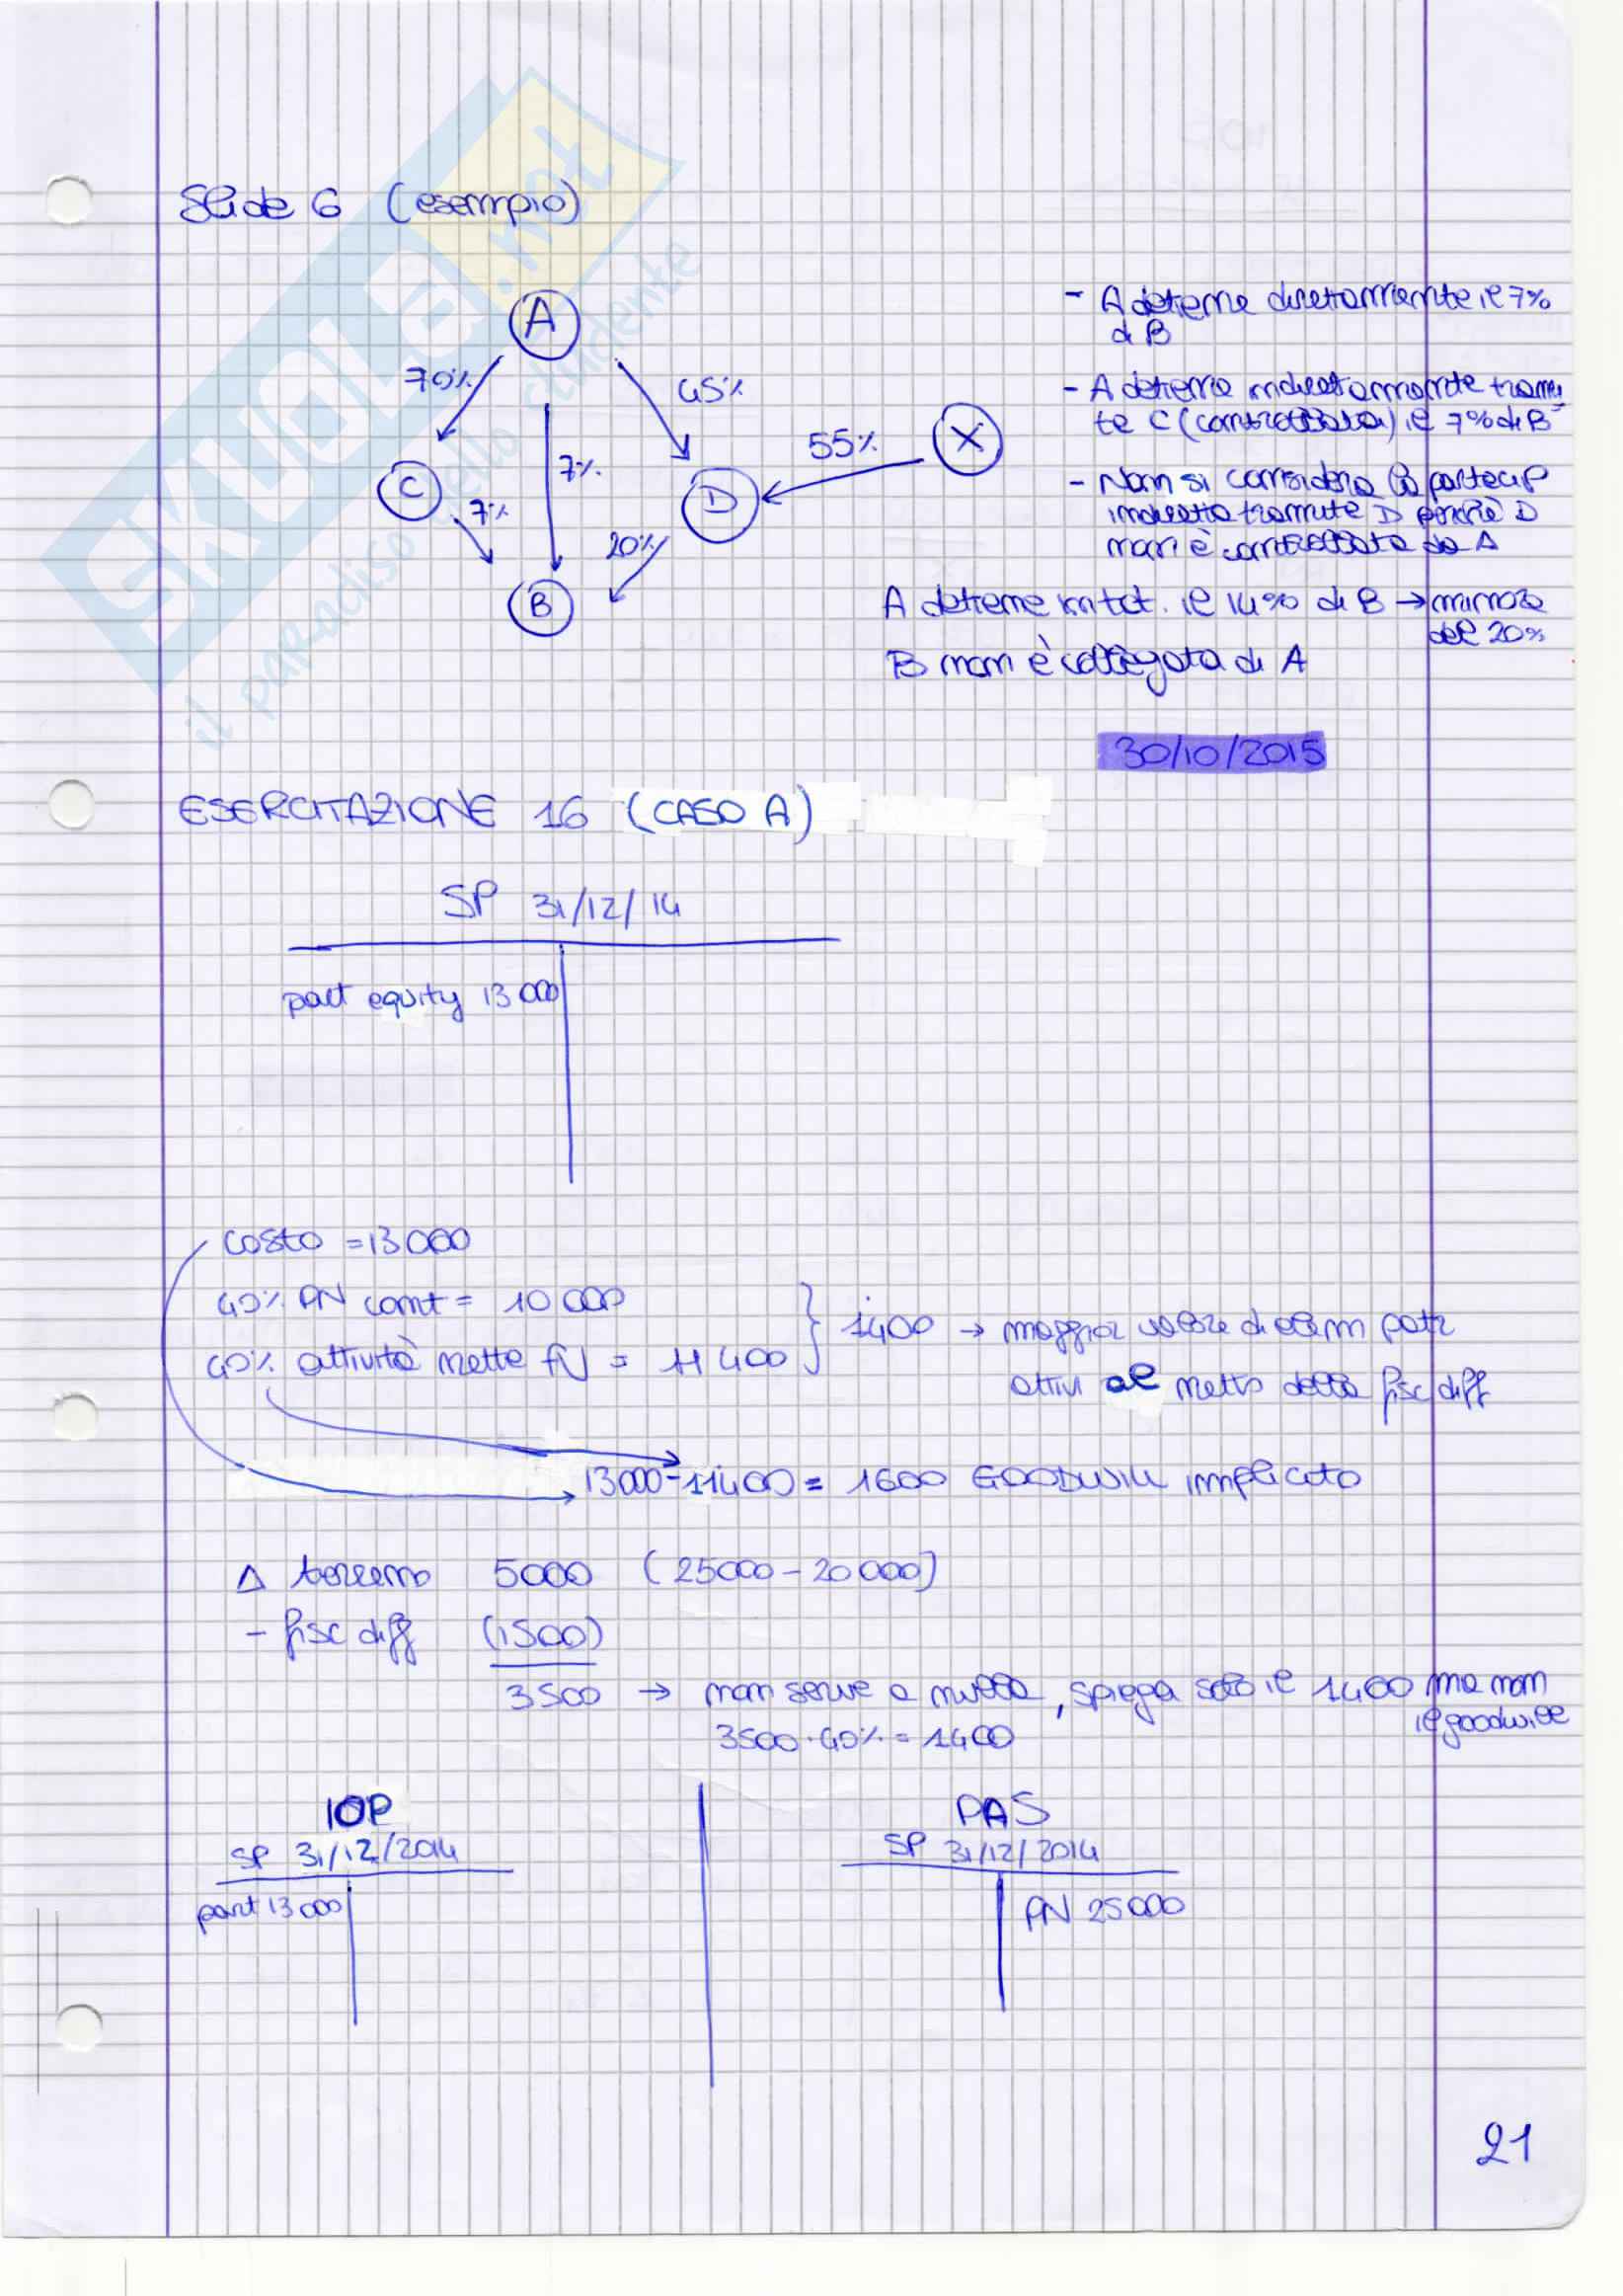 Slide 6 (esempio)
A
70%
45%
- A detiene direttamente il 7%
di B
- A detiene indirettamente trami
te C (controllata) il 7% di B
X
55%
C
7%
7%
D
20%
- Non si considera la partecip
indiretta tramite D perché D
non è controllata da A
B
A detiene in tot. il 14% di B → minore
del 20%
B non è collegata di A
30/10/2015
ESERCITAZIONE 16 (CASO A)
SP 31/12/14
part equity 13000
costo = 13000
40% PN cont = 10000
40% attività nette FV = 11400
} 1400 → maggior valore di elem patr
attivi al netto della fisc diff
13000-11400 = 1600 GOODWILL implicito
Δ terreno 5000 (25000-20000)
- fisc diff (1500)
3500 → non serve a nulla, spiega solo il 1400 ma non
il goodwill
3500·40% = 1400
IOP
SP 31/12/2014
part 13000
PAS
SP 31/12/2014
PN 25000
21
SKUOLA.net
il paradiso dello studente